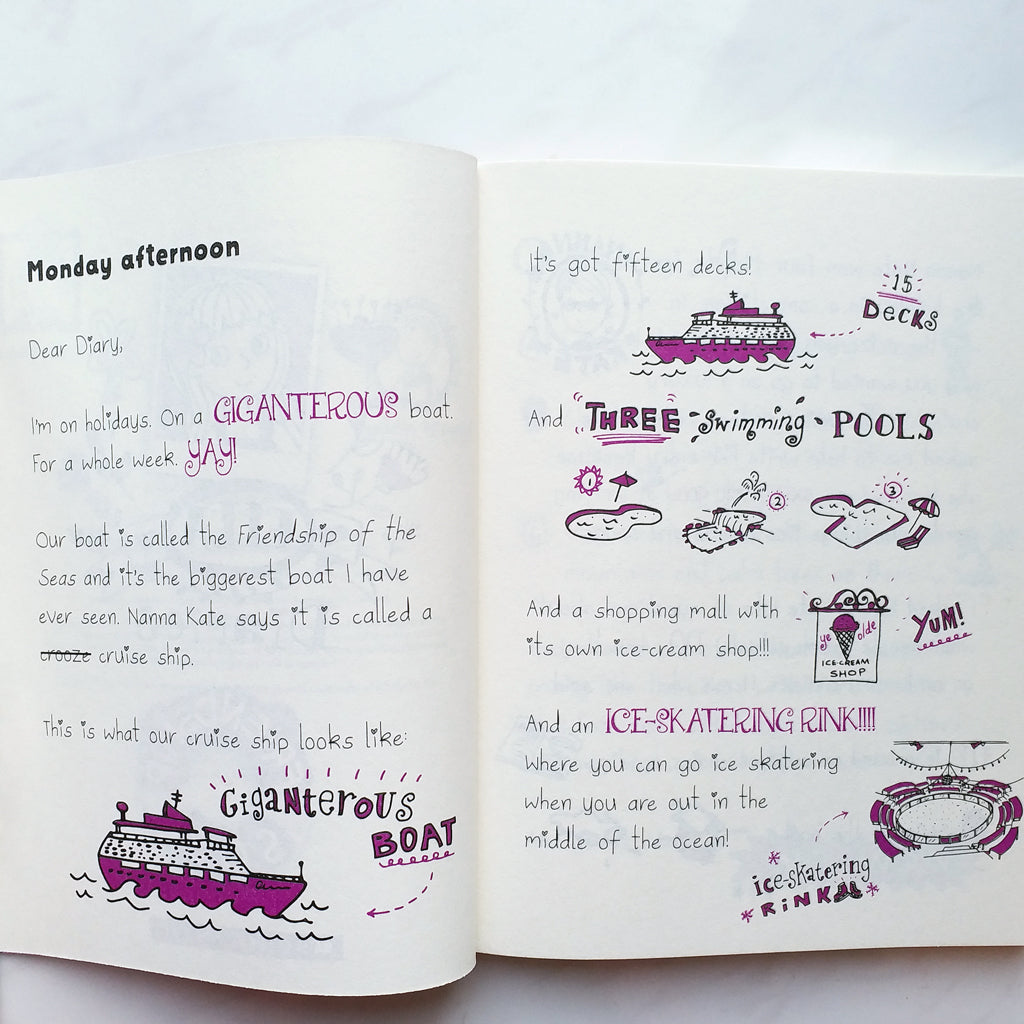 Monday afternoon
Dear Diary,
I'm on holidays. On a GIGANTEROUS boat.
For a whole week. YAY!
Our boat is called the Friendship of the
Seas and it's the biggerest boat I have
ever seen. Nanna Kate says it is called a
crooze cruise ship.
This is what our cruise ship looks like:
GiganterouS
BOAT
It's got fifteen decks!
15
Decks
And THREE Swimming POOLS
1
2
3
And a shopping mall with
its own ice-cream shop!!!
ye olde
ICE-CREAM
SHOP
YUM!
And an ICE-SKATERING RINK!!!!
Where you can go ice skatering
when you are out in the
middle of the ocean!
ice-skatering
RiNK